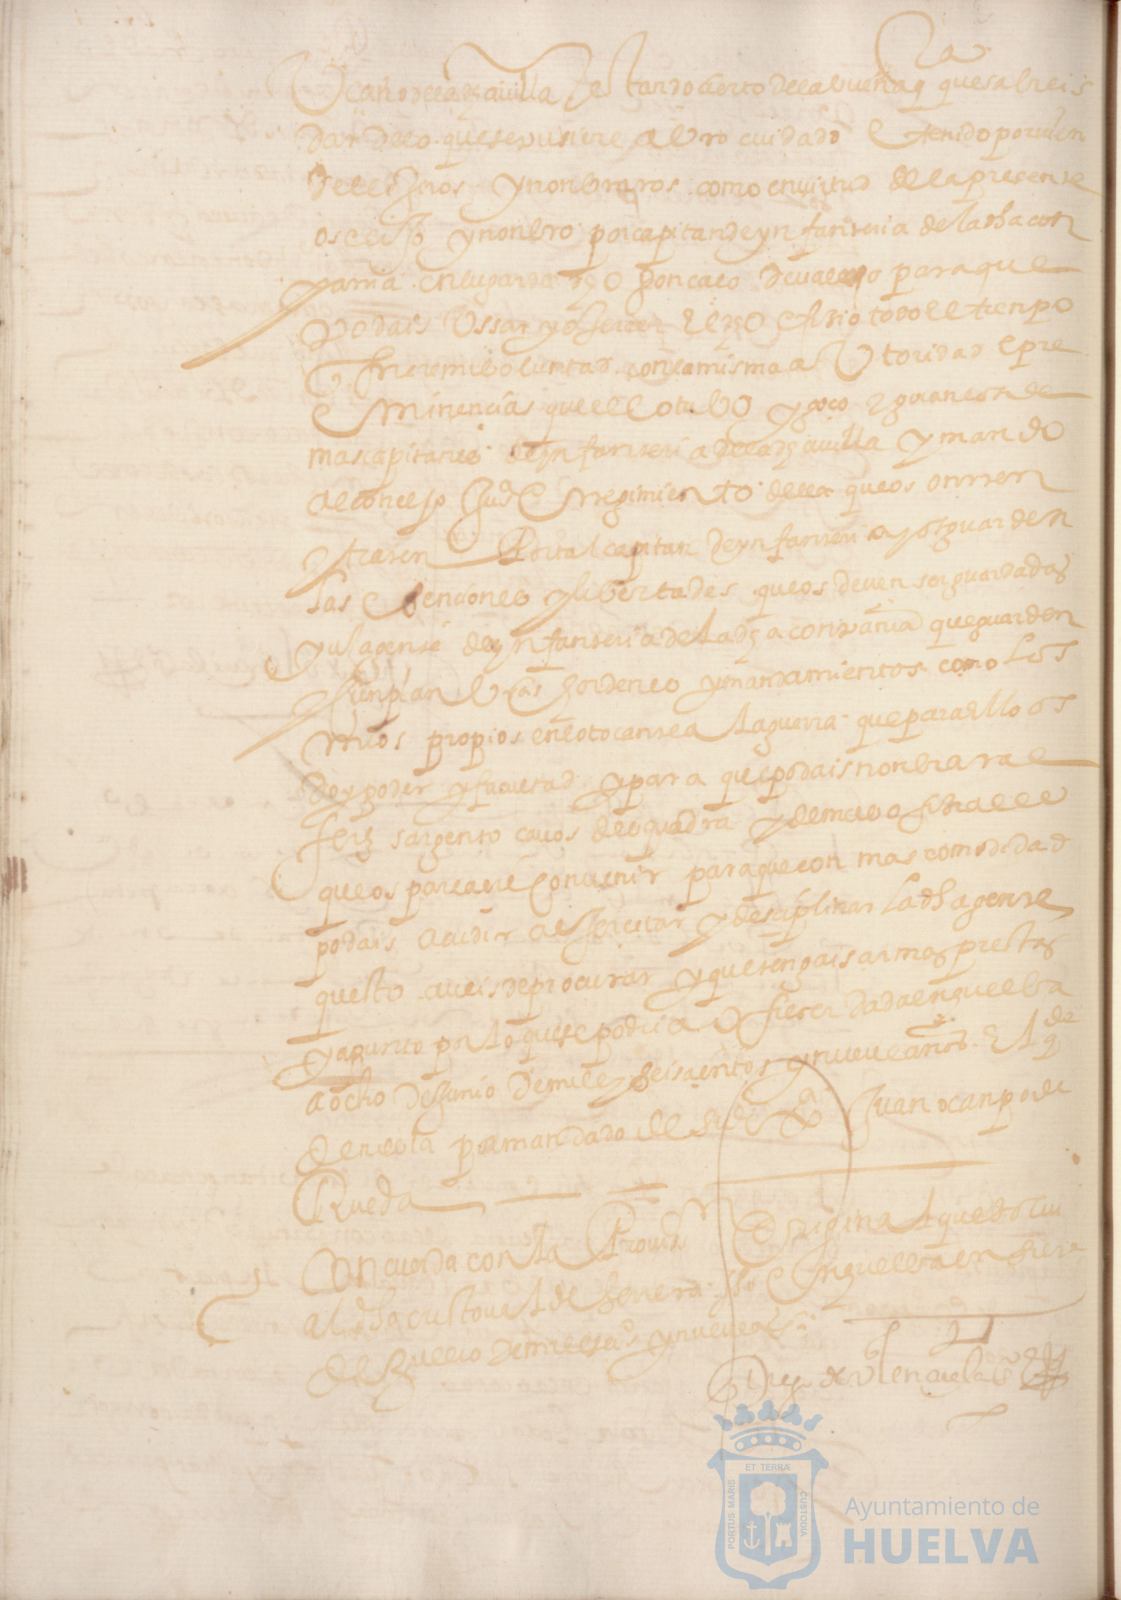 vecino dela dha villa y estando cierto dela buena qta que sabreis
dar de lo que se pusiere a vro cuidado e tenido por bien
de elexiros y nonbraros como en virtud de la presente
os elijo y nonbro por capitan de ynfanteria de la dha con
pania en lugar del dho goncalo de para que
podais Ussar y exercer el dho oficio todo el tienpo
q fuere mi voluntad con la misma autoridad e pre
eminencias que el lo tubo y goço e goçan los de
mas capitanes de ynfanteria de la dha villa y mando
al concejo Jusa e rregimiento della que os onrren
y traten Por tal capitan de ynfanteria y os guarden
las esenciones y libertades que os deven ser guardadas
y a la gente de ynfanteria de la dha conpania que guarden
y cunplan vras hordenes y mandamientos como los
mios propios en lo tocante a la guerra que para ello os
doy poder y facultad y para que podais nonbrar al
ferz sargento cavos de esquadra y demas oficiales
que os pareciere convenir para que con mas comodidad
podais acudir a exercitar y desciplinar la dha gente
questo aveis de procurar y que tengais armas prestas
y a punto por lo que se podria ofrecer dada en guelba
a ocho de Junio de mill y seiscientos y nueve años El
por mandado de su Juan ocanpo de
Rueda
Concuerda con la Provis orijinal que bolvi
al dho cristoval de herrera en guelba en
de Jullio de mill e seisos y nueve as
Diego de Valençuela
PORTUS MARIS ET TERRÆ CUSTODIA
Ayuntamiento de
HUELVA